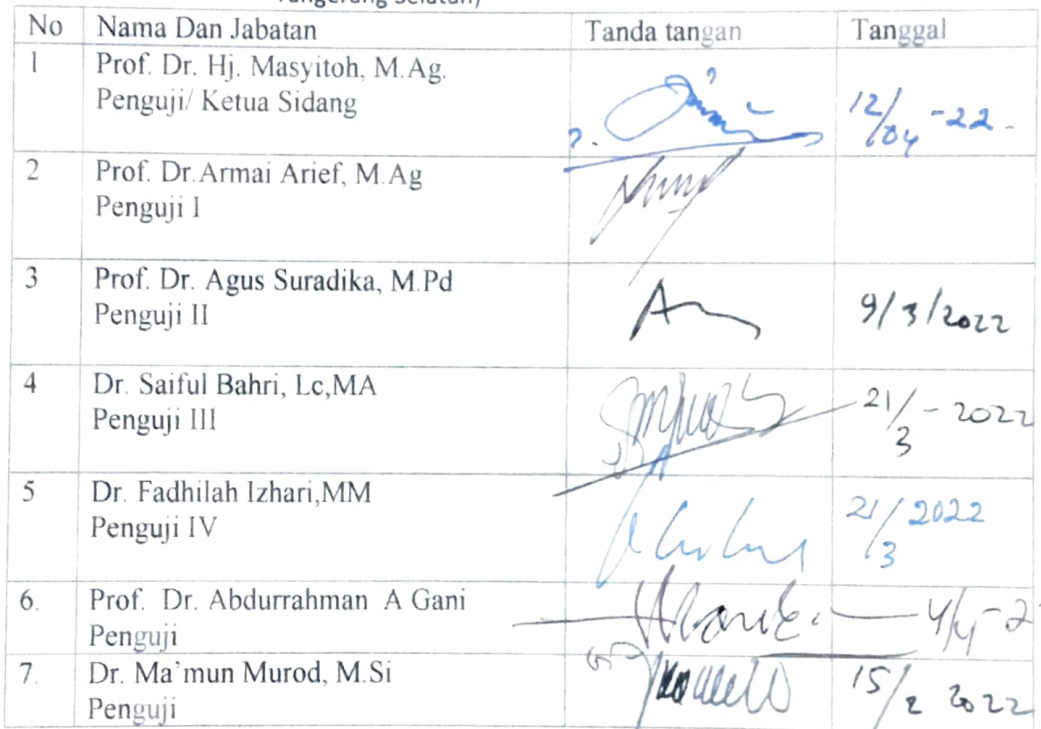 Tangerang Selatan)
No Nama Dan Jabatan Tanda tangan Tanggal
1 Prof. Dr. Hj. Masyitoh, M.Ag.
Penguji/ Ketua Sidang 12/04 -22 -
2 Prof. Dr.Armai Arief, M.Ag
Penguji I
3 Prof. Dr. Agus Suradika, M.Pd
Penguji II 9/3/2022
4 Dr. Saiful Bahri, Lc,MA
Penguji III 21/3 - 2022
5 Dr. Fadhilah Izhari,MM
Penguji IV 21/3 2022
6. Prof. Dr. Abdurrahman A Gani
Penguji 4/4-2
7. Dr. Ma'mun Murod, M.Si
Penguji 15/2 2022